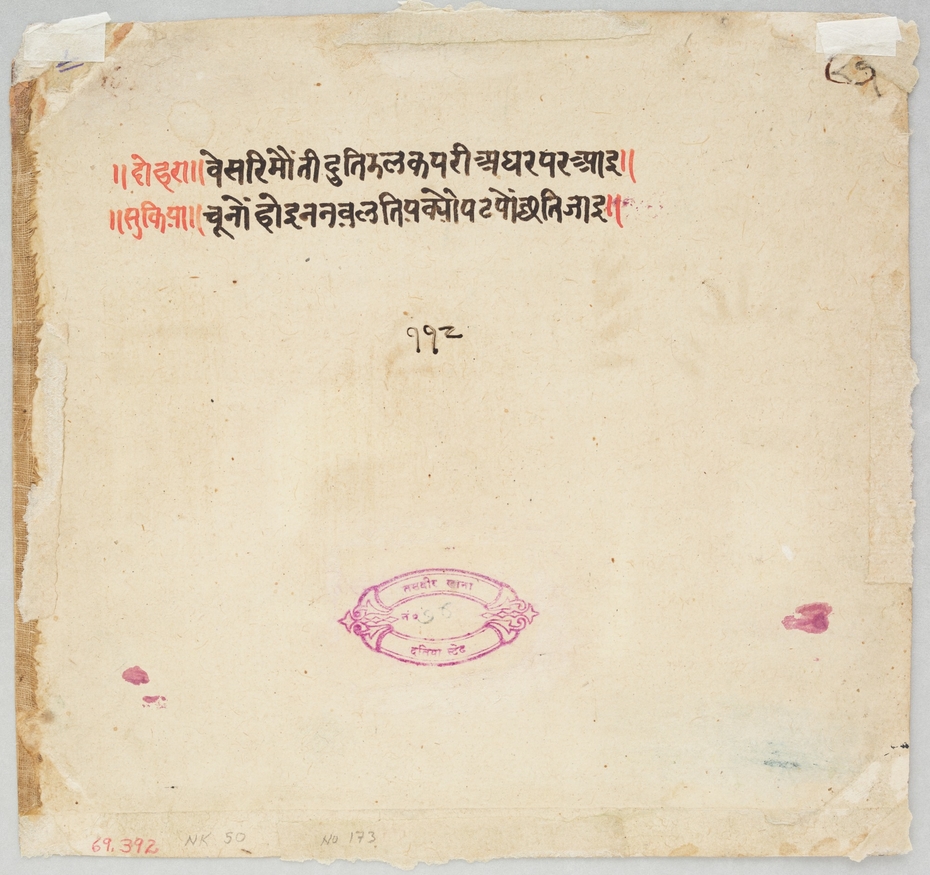 ॥दोहरा॥वेसरिमोंतीदुतिझलकपरीअधरपरआइ॥
॥सुकिया॥चूनोंहोइननवलतियक्योंपटपोंछ्यतिजाइ॥
११८
तसवीर खाना
नं०
दतिया स्टेट
69.392 NK 50 No 173